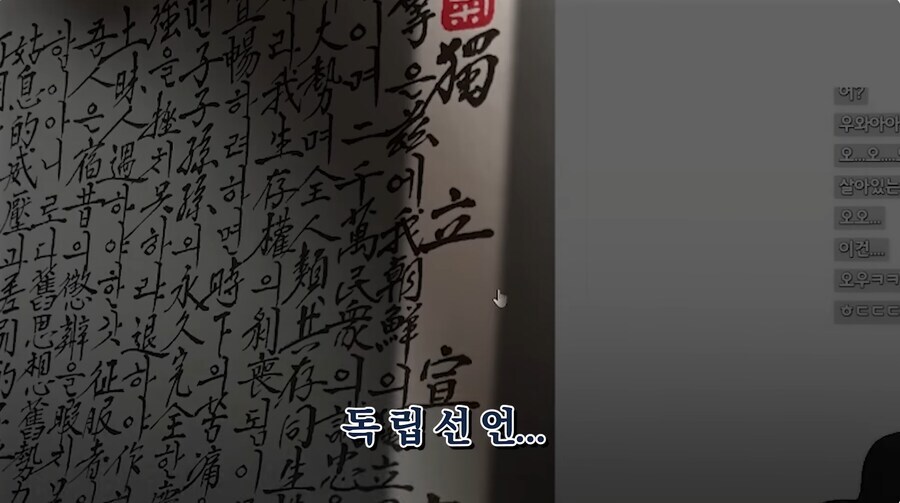 獨立宣
은茲에我朝鮮의
이며二千萬民衆의誠忠
大勢며全人類共存同生
라我生存權의剝喪됨이
宣暢하려하면時下의苦痛
면子子孫孫의永久完全한
強을挫치못하랴退하야作
土昧人遇하야한갓征服者
吾人은宿昔의懲辦을暇치
할이아니로다舊思想舊勢力
姑息的威壓과差別的
독립선언...
허?
우와아아
오...오....
살아있는
오오...
이건....
오우ㅋㅋ
ㅎㄷㄷㄷ